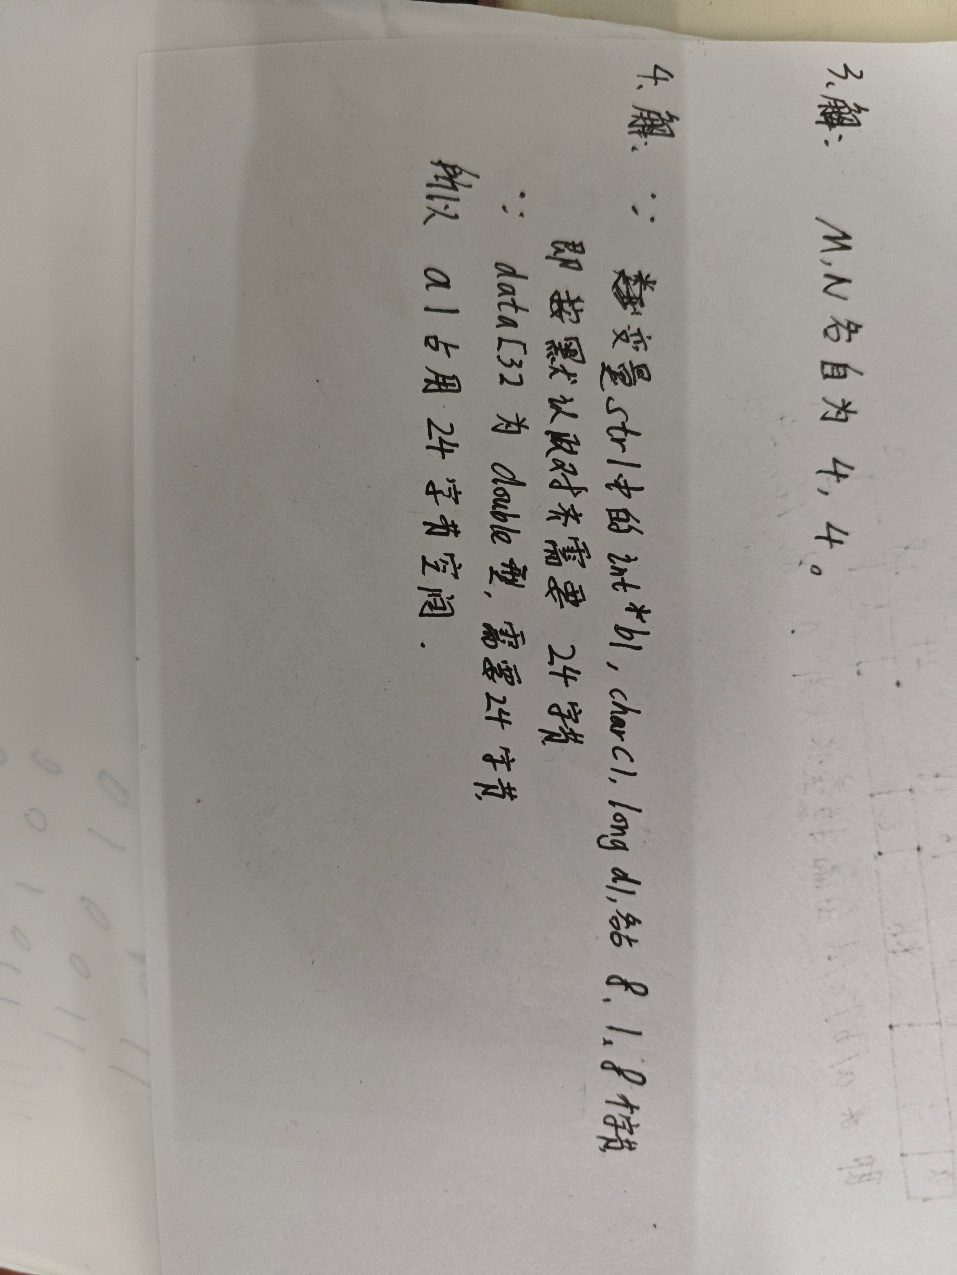 3、解: M,N各自为 4, 4。
4、解: ∵ 变量str1中的 int *b1, char c1, long d1, 各占 8、1、8个字节
即按默认改对齐需要 24字节
∵ data[3]为 double型, 需要24字节,
所以 a1占用 24字节空间.